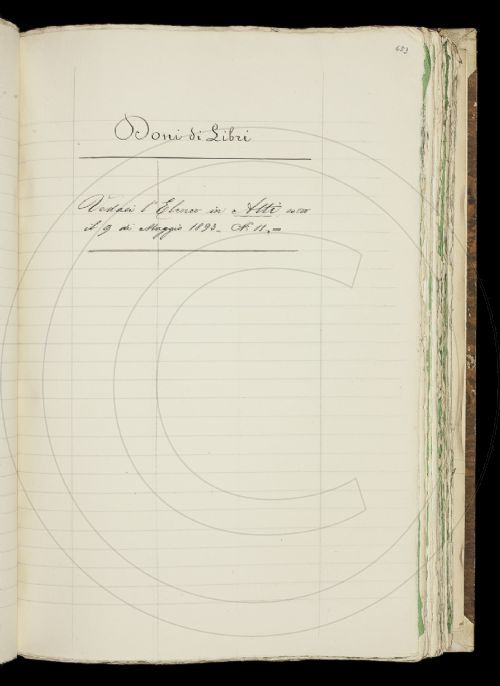 683
Doni di Libri
Vedasi l'Elenco in Atti sotto
il 9 di Maggio 1893. N. 11. =